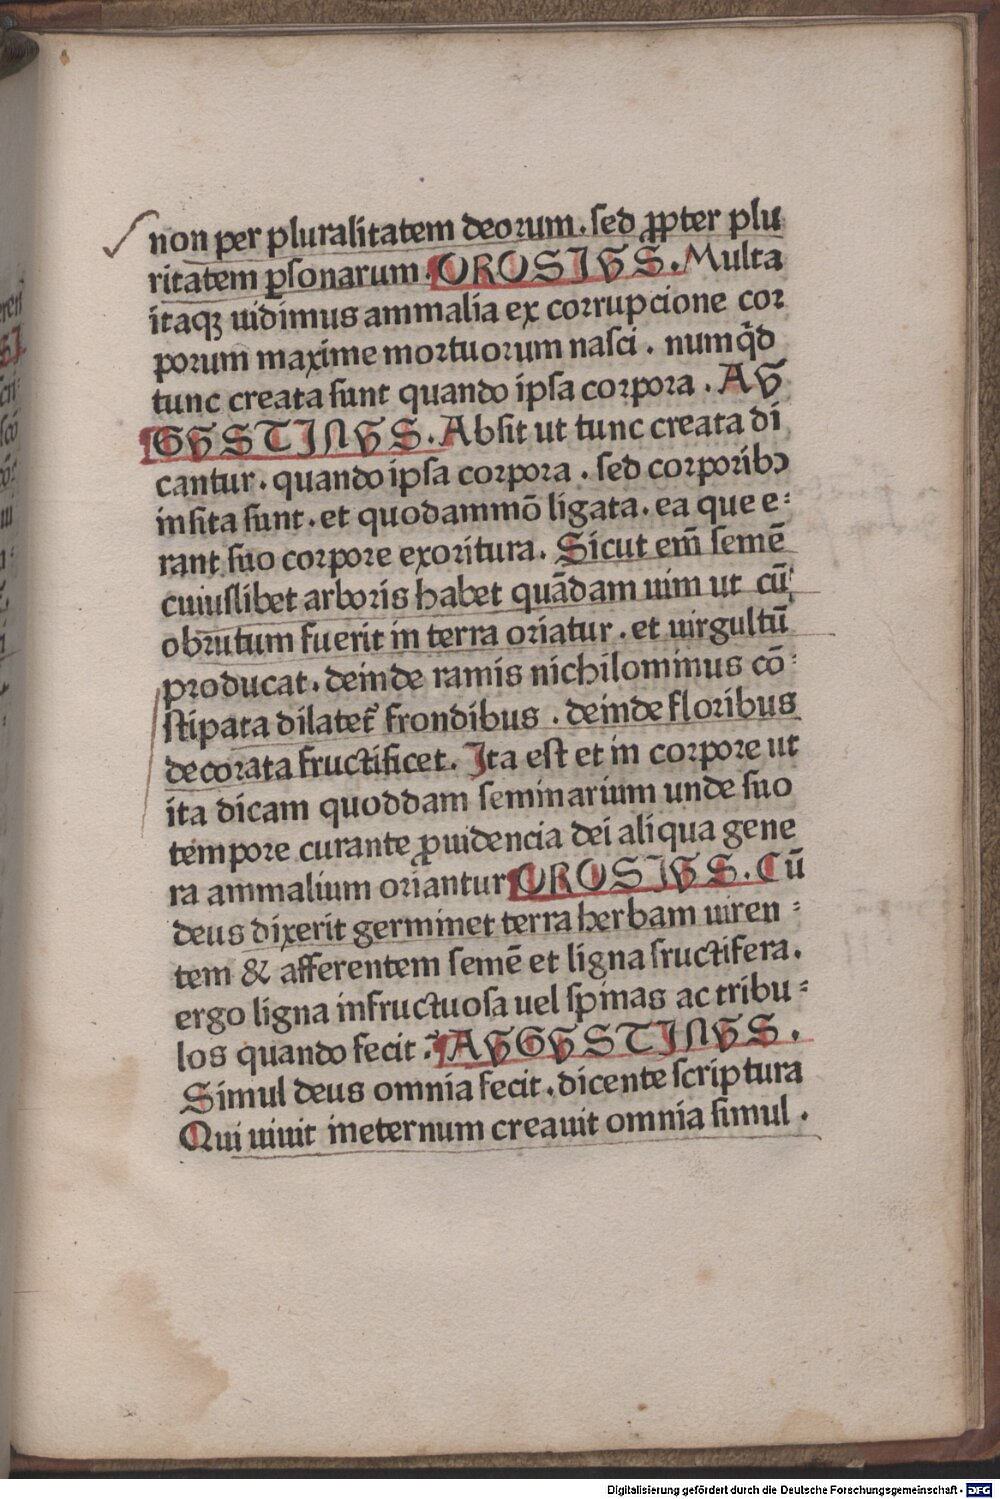 non per pluralitatem deorum. sed ꝓpter plu
ritatem ꝑsonarum. OROSIVS. Multa
itaqꝫ uidimus animalia ex corrupcione cor
porum maxime mortuorum nasci. numqͥd
tunc creata sunt quando ipsa corpora. AV
GVSTINVS. Absit ut tunc creata di
cantur. quando ipsa corpora. sed corporibꝰ
insita sunt. et quodammō ligata. ea que e⸗
rant suo corpore exoritura. Sicut em̄ semē
cuiuslibet arboris habet quādam uim ut cū
obrutum fuerit in terra oriatur. et uirgultū
producat. deinde ramis nichilominus cō⸗
stipata dilatet᷑ frondibus. deinde floribus
decorata fructificet. Ita est et in corpore ut
ita dicam quoddam seminarium unde suo
tempore curante ꝓuidencia dei aliqua gene
ra animalium oriantur OROSIVS. Cū
deus dixerit germinet terra herbam uiren⸗
tem & afferentem semē et ligna fructifera.
ergo ligna infructuosa uel spinas ac tribu⸗
los quando fecit? AVGVSTINVS.
Simul deus omnia fecit. dicente scriptura
Qui uiuit ineternum creauit omnia simul.
Digitalisierung gefördert durch die Deutsche Forschungsgemeinschaft - DFG